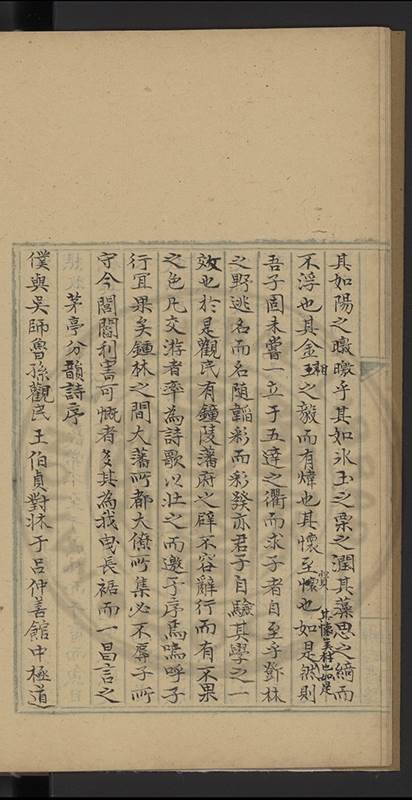 其如陽之暾暾乎其如氷玉之栗之潤其藻思之縟而
不浮也其金玉相之毅而有煒也其懷至懷也如是然則
賞
其懷美材也如是
吾子固未嘗一立于五達之衢而求子者自至乎鄧林
之野逃名而名随韜彩而彩發亦君子自驗其學之一
效也於是觀民有鐘陵藩府之辟不容辭行而有不果
之色凡交游者率為詩歌以壮之而邀予序焉嗚呼子
行冝果矣鍾林之間大藩所都大僚所集必不辱子所
守今閭閻利害可慨者多其為我曳長裾而一昌言之
茅亭分韻詩序
僕與吴師魯孫觀民王伯貞對牀于吕仲善館中極道